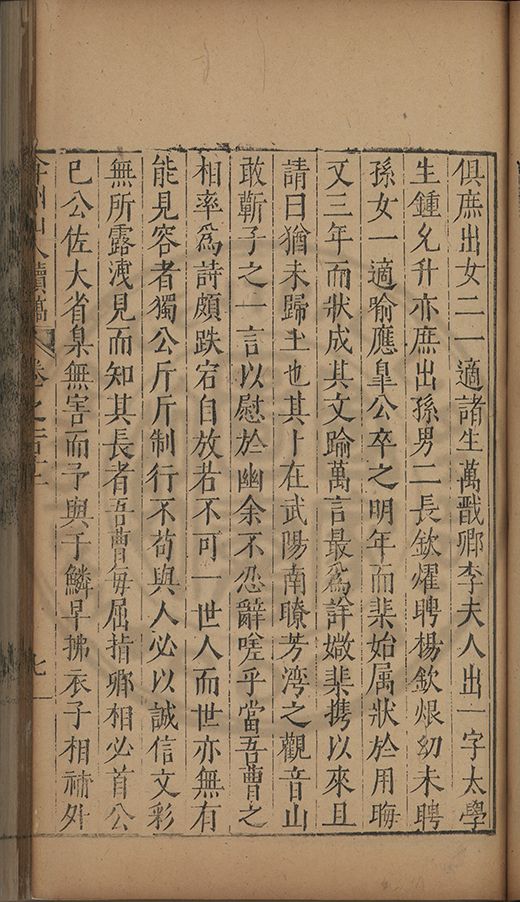 俱庶出女二一適諸生萬戬卿李夫人出一字太學
生鍾允升亦庶出孫男二長欽燿聘楊欽烺幼未聘
孫女一適喻應臯公卒之明年而棐始属狀於用晦
又三年而狀成其文踰萬言最為詳媺棐携以來且
請曰猶未歸土也其卜在武陽南瞭芳湾之觀音山
敢蘄子之一言以慰於幽余不忍辭嗟乎當吾曹之
相率爲詩頗跌宕自放若不可一世人而世亦無有
能見容者獨公斤斤制行不苟與人必以誠信文彩
無所露洩見而知其長者吾曹每屈指卿相必首公
已公佐大省臬無害而予與子鱗早拂衣子相補外
弇州山人續稿 卷之一百
七